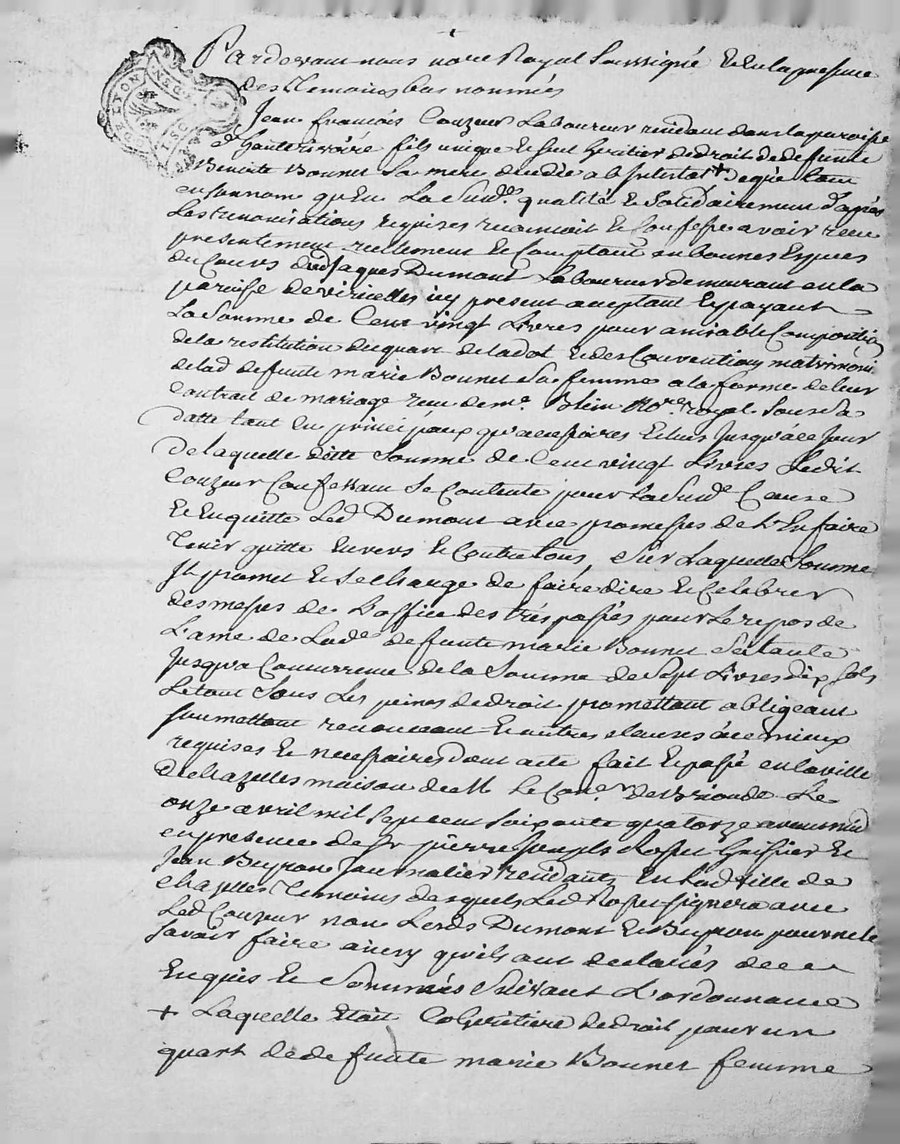 Pardevant nous no.re Royal Soussigné Et En la presence
des Temoins bas nommés
DE LYON
Jean françois Couzeur Laboureur residant dans la paroisse
d'hauterivoire fils unique Et seul heritier de droit de defunte
Benoite Bonnet Sa mere decedée abIntestat +
en son nom qu'en La Susd.e qualité Et Solidairement d'apres
Les renonciations requises reconnoit Et Confesse avoir receu
presentement reellement Et Comptant en bonnes Especes
du Cours de Jaques Dumont Laboureur demeurant en la
paroisse de viricelles icy present acceptant Et payant
La Somme de Cent vingt Livres pour amiable Composition
de la restitution du quart de la dot Et des Conventions matrimoni
de lad defunte marie Bonnet Sa femme a la forme de leur
Contrait de mariage receu de m.e Blein No.re royal Sous Sa
datte tant En principaux qu'accessoires Echus Jusqu'a ce Jour
De laquelle ditte Somme de Cent vingt Livres Ledit
Couzeur Confessant Se Contente pour La Susd.e Cause
Et En quitte Led Dumont avec promesses de L'En faire
Tenir quitte Envers Et Contre tous, Sur Laquelle Somme
Il promet Et Se Charge de faire dire Et Celebrer
des messes de L'office des trépassés pour Le repos de
L'ame de Lad.e defunte marie Bonnet Sa tante
Jusqu'a Concurrence de la Somme de Sept Livres dix Sols
Le tout Sous Les peines de droit promettant obligeant
soumettant renonceant Et autres clauses à ce mieux
requises Et necessaires dont acte fait Et passé en la ville
de chazelles maison de M Le Con.er De Brionde Le
onze avril mil Sept cent Soixante quatorze avant midi
en presence de S.r pierre Joseph Huissier Et
Jean Buyron Journalier residants En lad ville de
chazelles Temoins desquels Led Signera avec
Led Couzeur non Lesds Dumont Et Buyron pour ne le
Savoir faire ainsy qu'ils ont declarés de ce
Enquis Et Sommés Suivant L'ordonnance
+ Laquelle Etoit Coheritiere de droit pour un
quart de defunte marie Bonnet femme